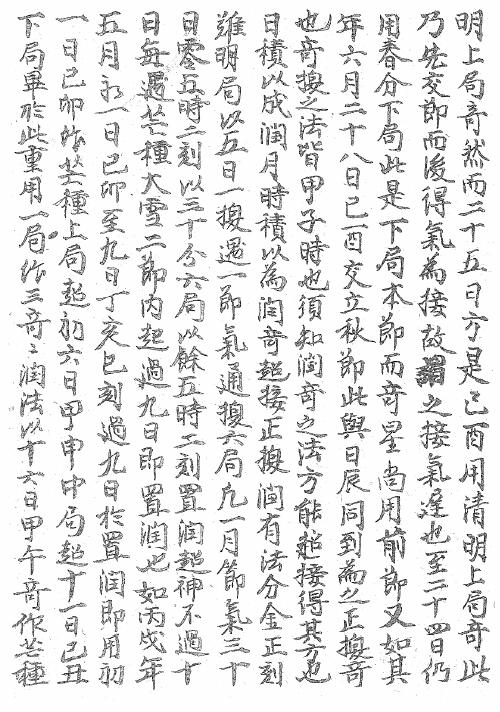 明上局奇然而二十五日方是己酉用清明上局奇此
乃先交節而後得氣為接故謂之接氣遲也至二十四日仍
用春分下局此是下局本節而奇星尚用前節又如其
年六月二十八日己酉交立秋節此與日辰同到為之正換奇
也奇換之法皆甲子時也須知潤奇之法方能超接得其方也
日積以成潤月時積以為潤奇超接正換潤有法分金正刻
難明局以五日一換遇一節氣通換六局凡一月節氣三十
日零五時二刻以三十分六局以餘五時二刻置潤超神不過十
日每遇芒種大雪二節內超過九日即置潤也如丙戌年
五月初一日己卯至九日丁亥巳刻過九日於置潤即用初
一日己卯作芒種上局超初六日甲申中局超十一日己丑
下局畢於此重用一局作三奇之潤法以十六日甲午奇作芒種